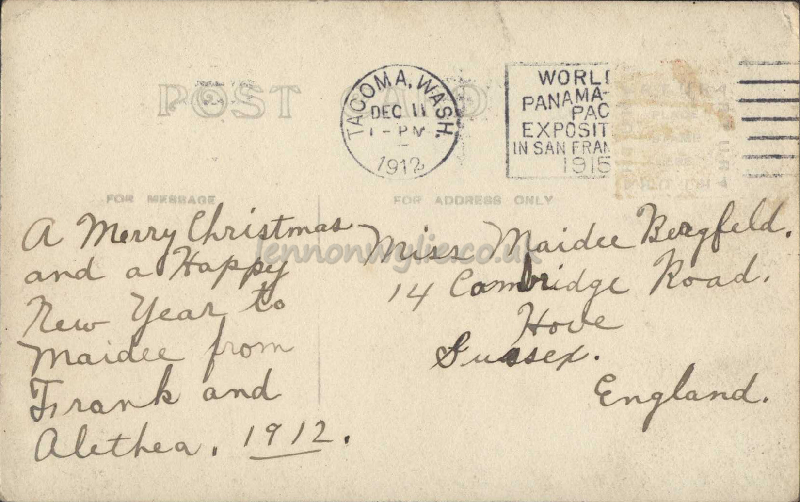 POST CARD
TACOMA, WASH.
DEC 11
1-PM
1912
WORL
PANAMA-
PAC
EXPOSIT
IN SAN FRAN
1915
FOR MESSAGE
FOR ADDRESS ONLY
A Merry Christmas
and a Happy
New Year to
Maidee from
Frank and
Alethea. 1912.
Miss Maidee Bergfeld.
14 Cambridge Road.
Hove
Sussex.
England.
lennonwylie.co.uk